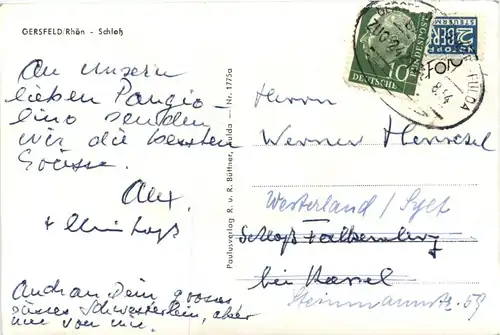 GERSFELD/Rhön - Schloß
An unsern
lieben Pangio-
lino senden
wir die besten
Grüsse.
Alex.
+
Auch an Dein grosses
süsses Schwesterlein, aber
nur von mir.
Paulusverlag R. u. R. Büttner, Fulda — Nr. 1775a
DEUTSCHE
BUNDESPOST
10
NOTOPFER
2 BERLIN
STEUERMARKE
FULDA
Herrn
Werner
Westerland / Sylt
Schloß Falkenberg
bei Kassel